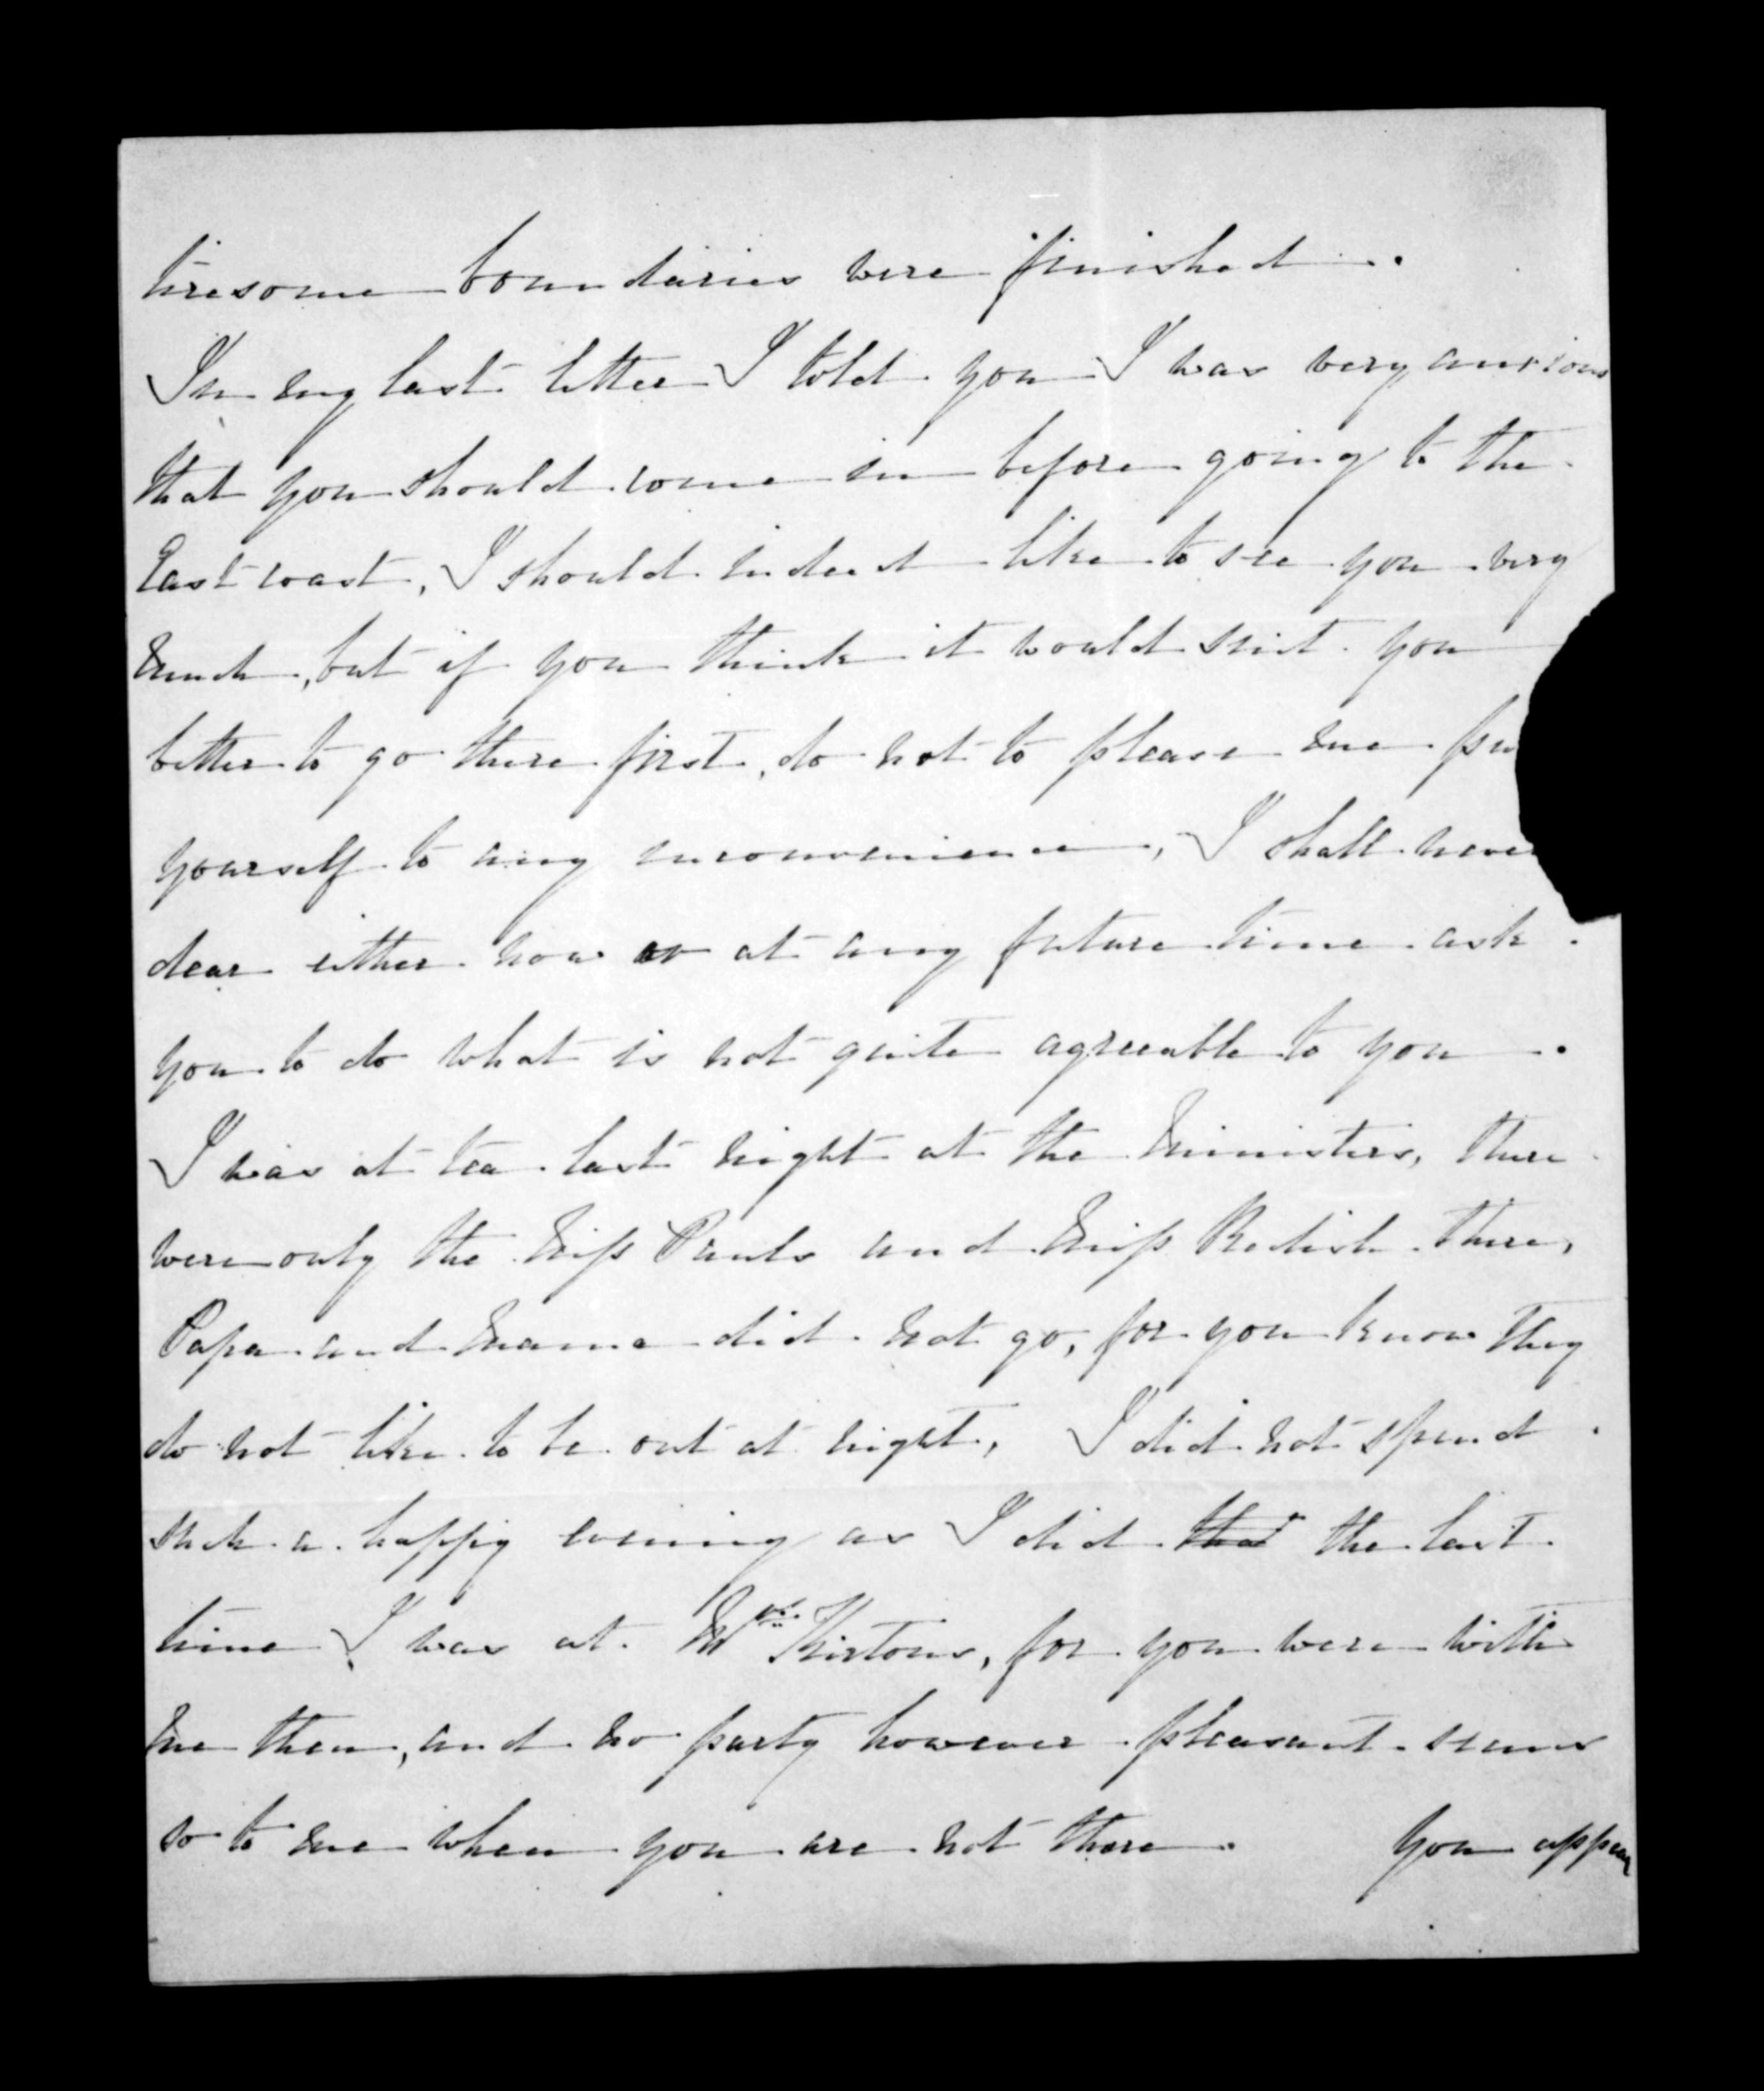 tiresome boundaries were finished.
In my last letter I told you I was very anxious
that you should come in before going to the
East coast, I should indeed like to see you very
much, but if you think it would suit you
better to go there first, do not to please me pu
yourself to any inconvenience, I shall never
dear either now or at any future time ask
you to do what is not quite agreeable to you.
I was at tea last night at the Ministers, there
were only the Miss Pauls and Miss Redish there,
Papa and Mama did not go, for you know they
do not like to be out at night, I did not spend
such a happy evening as I did that the last
time I was at Mrs Kirtons, for you were with
me then, and no party however pleasant seems
so to me when you are not there. You appear